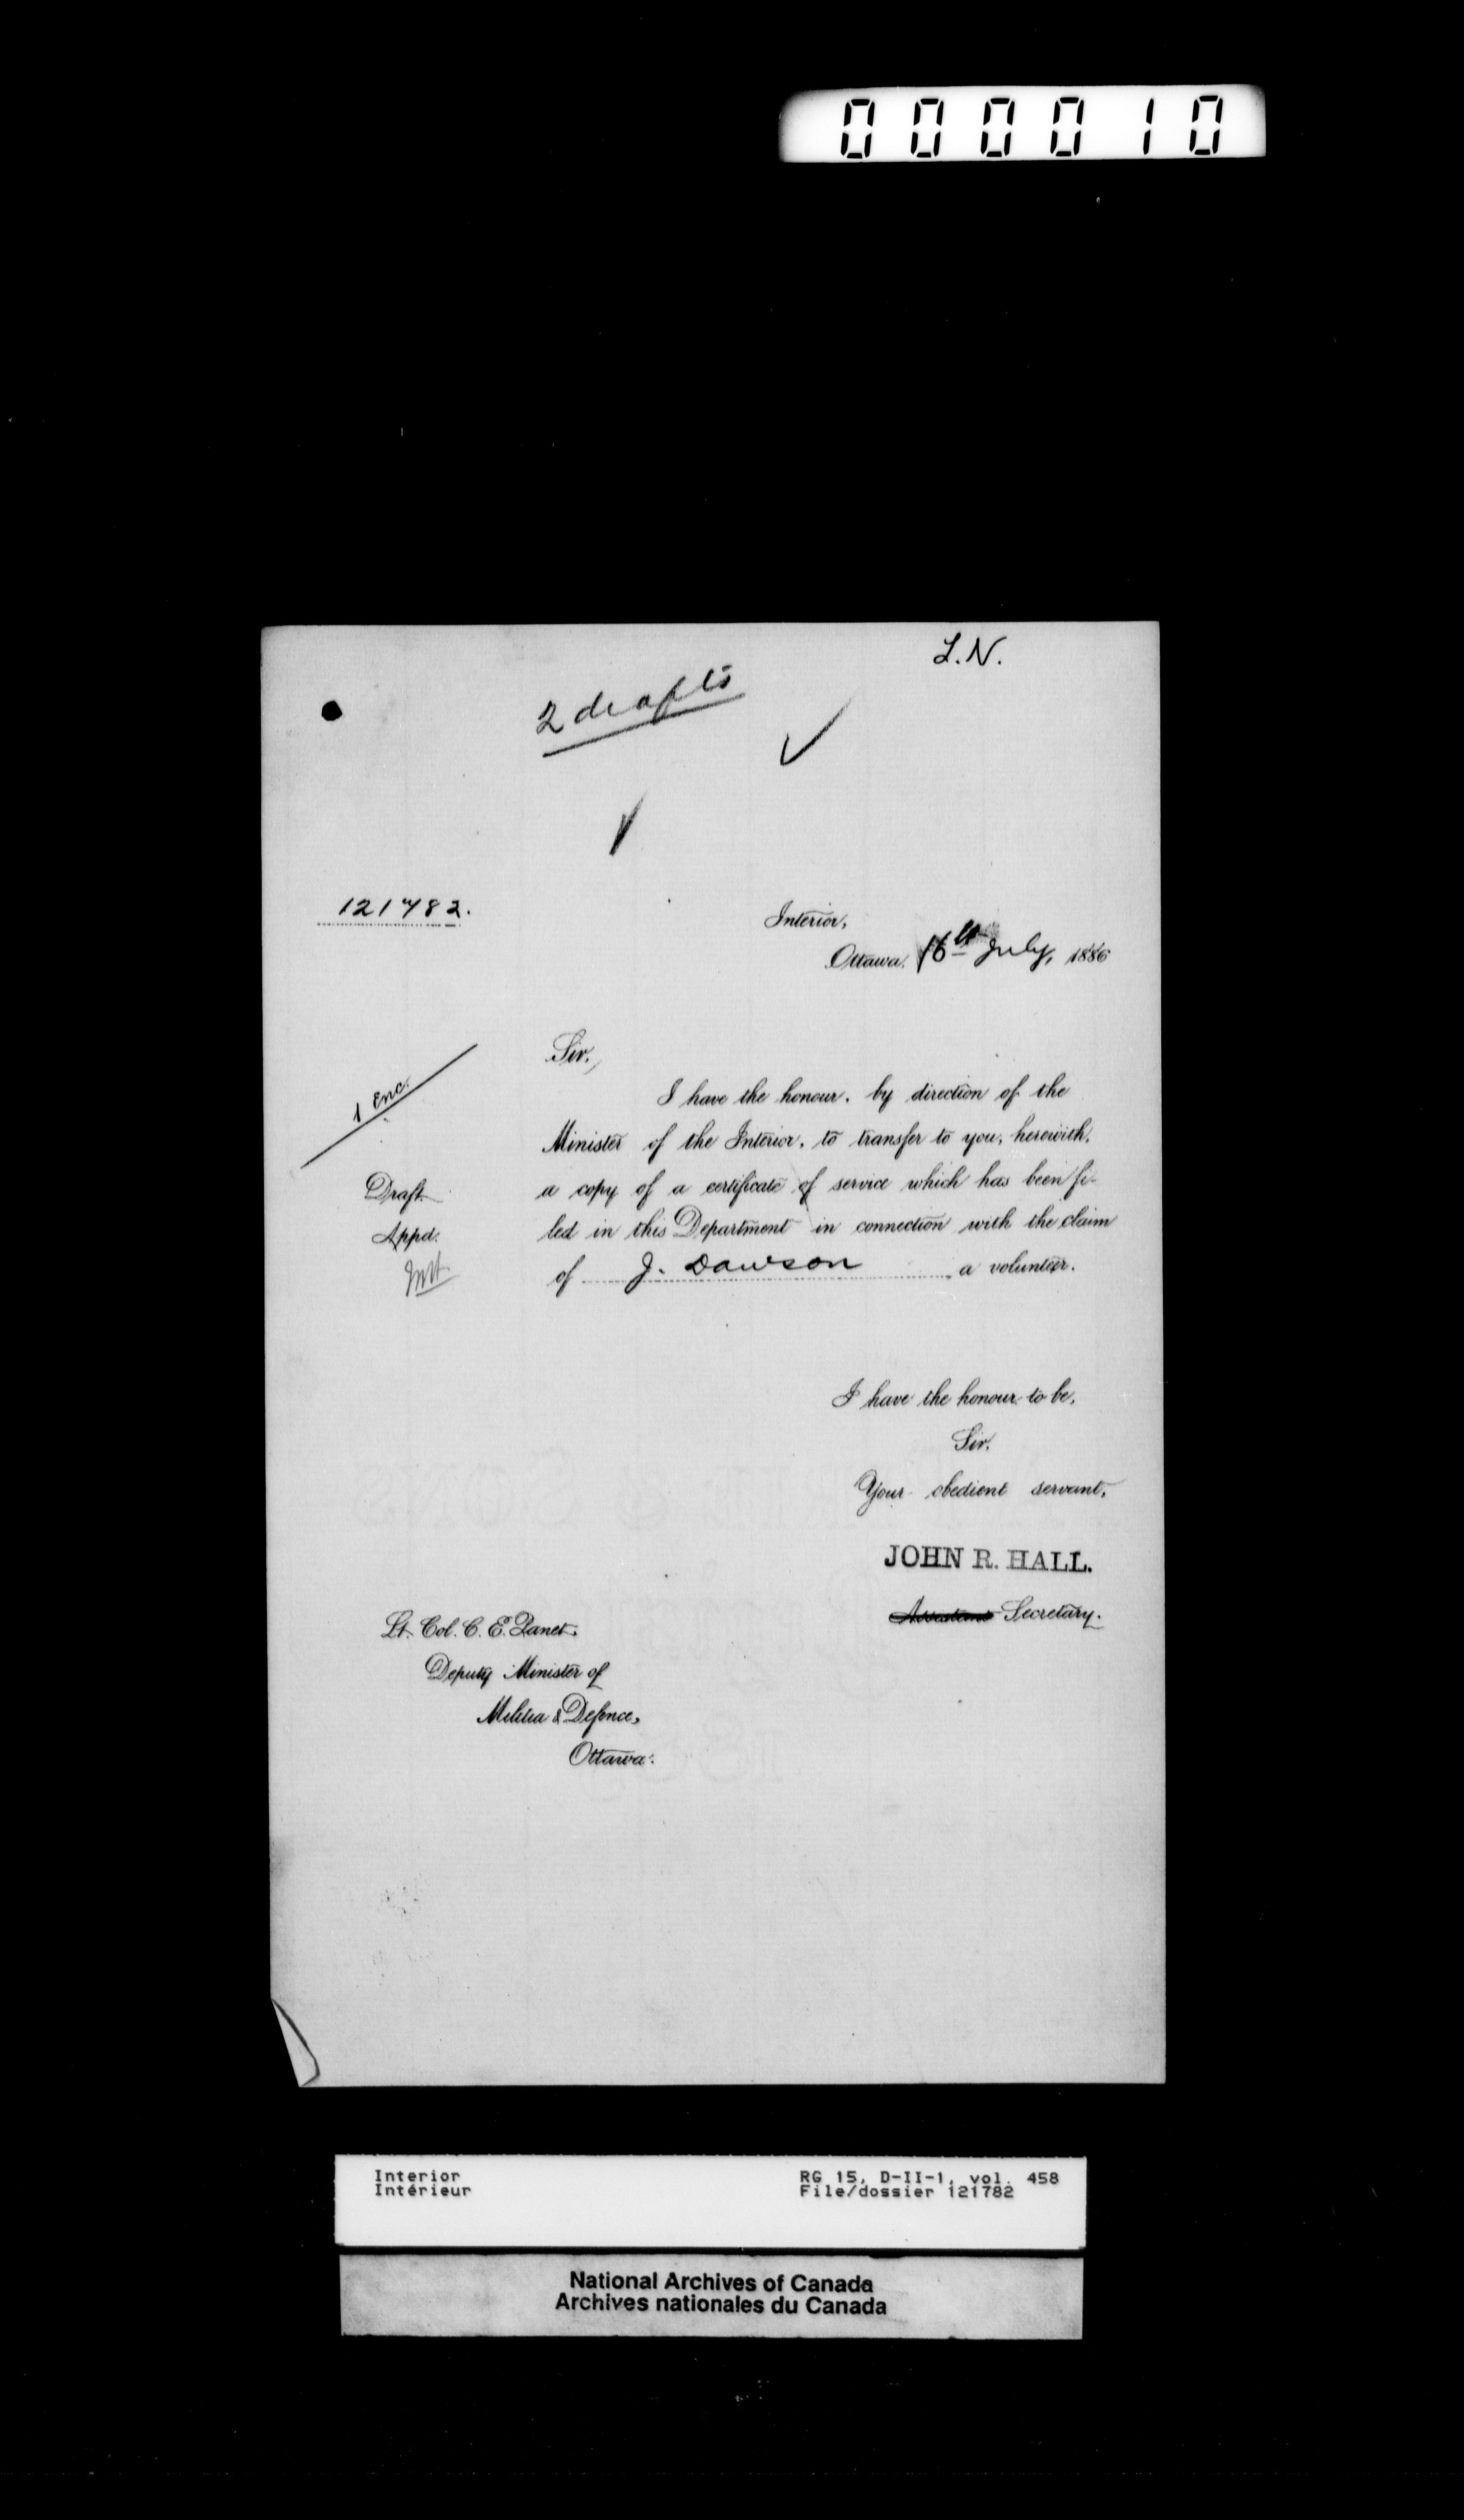 000010
L.N.
2 drafts
121782.
Interior,
Ottawa, 16th July, 1886
Sir,
1 Enc.
I have the honour, by direction of the
Minister of the Interior, to transfer to you, herewith,
Draft
a copy of a certificate of service which has been fi-
Appd.
led in this Department in connection with the claim
of J. Dawson a volunteer.
I have the honour to be,
Sir,
Your obedient servant,
JOHN R. HALL.
Assistant Secretary.
Lt. Col. C. E. Panet,
Deputy Minister of
Militia & Defence,
Ottawa.
Interior
Intérieur
RG 15, D-II-1, vol. 458
File/dossier 121782
National Archives of Canada
Archives nationales du Canada